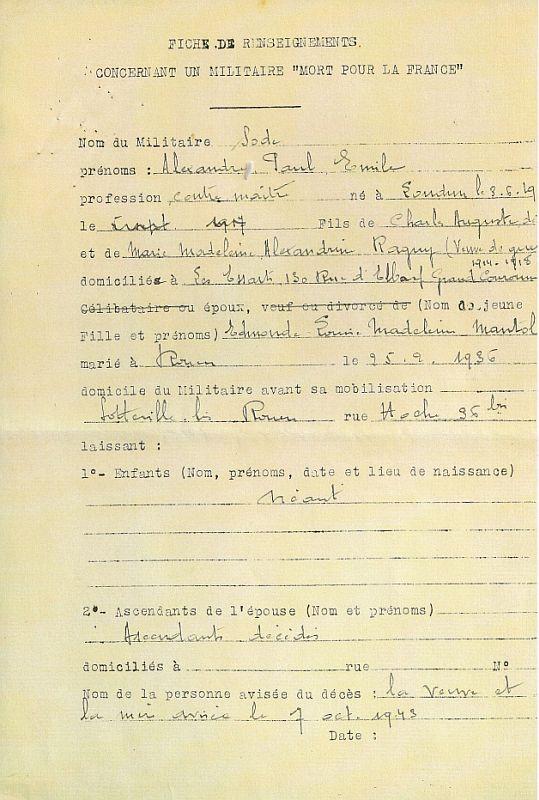 FICHE DE RENSEIGNEMENTS
CONCERNANT UN MILITAIRE "MORT POUR LA FRANCE"
Nom du Militaire Sode
prénoms : Alexandre Paul Emile
profession contre maître né à Loudun le 8.6.19
le 1917 Fils de Charles Auguste
et de Marie Madeleine Alexandrine Raguy (Veuve de guerre
1914-1918
domiciliés à Les Essarts 130 Rue d'Elbeuf Grand Couronne
Célibataire ou époux, veuf ou divorcé de (Nom de jeune
Fille et prénoms) Edmonde Louise Madeleine
marié à Rouen le 25.9.1936
domicile du Militaire avant sa mobilisation
Sotteville les Rouen rue Hoche 36 bis
laissant :
1°- Enfants (Nom, prénoms, date et lieu de naissance)
Néant
2°- Ascendants de l'épouse (Nom et prénoms)
Ascendants décédés
domiciliés à rue N°
Nom de la personne avisée du décès : la veuve et
la mère avisée le 7 oct. 1943
Date :